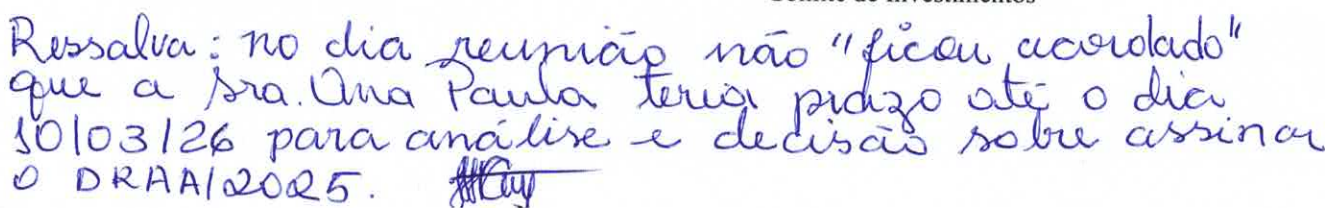 Comitê de Investimentos
Ressalva: no dia reunião não "ficou acordado"
que a sra. Ana Paula teria prazo até o dia
10/03/26 para análise e decisão sobre assinar
o DRAA/2025.